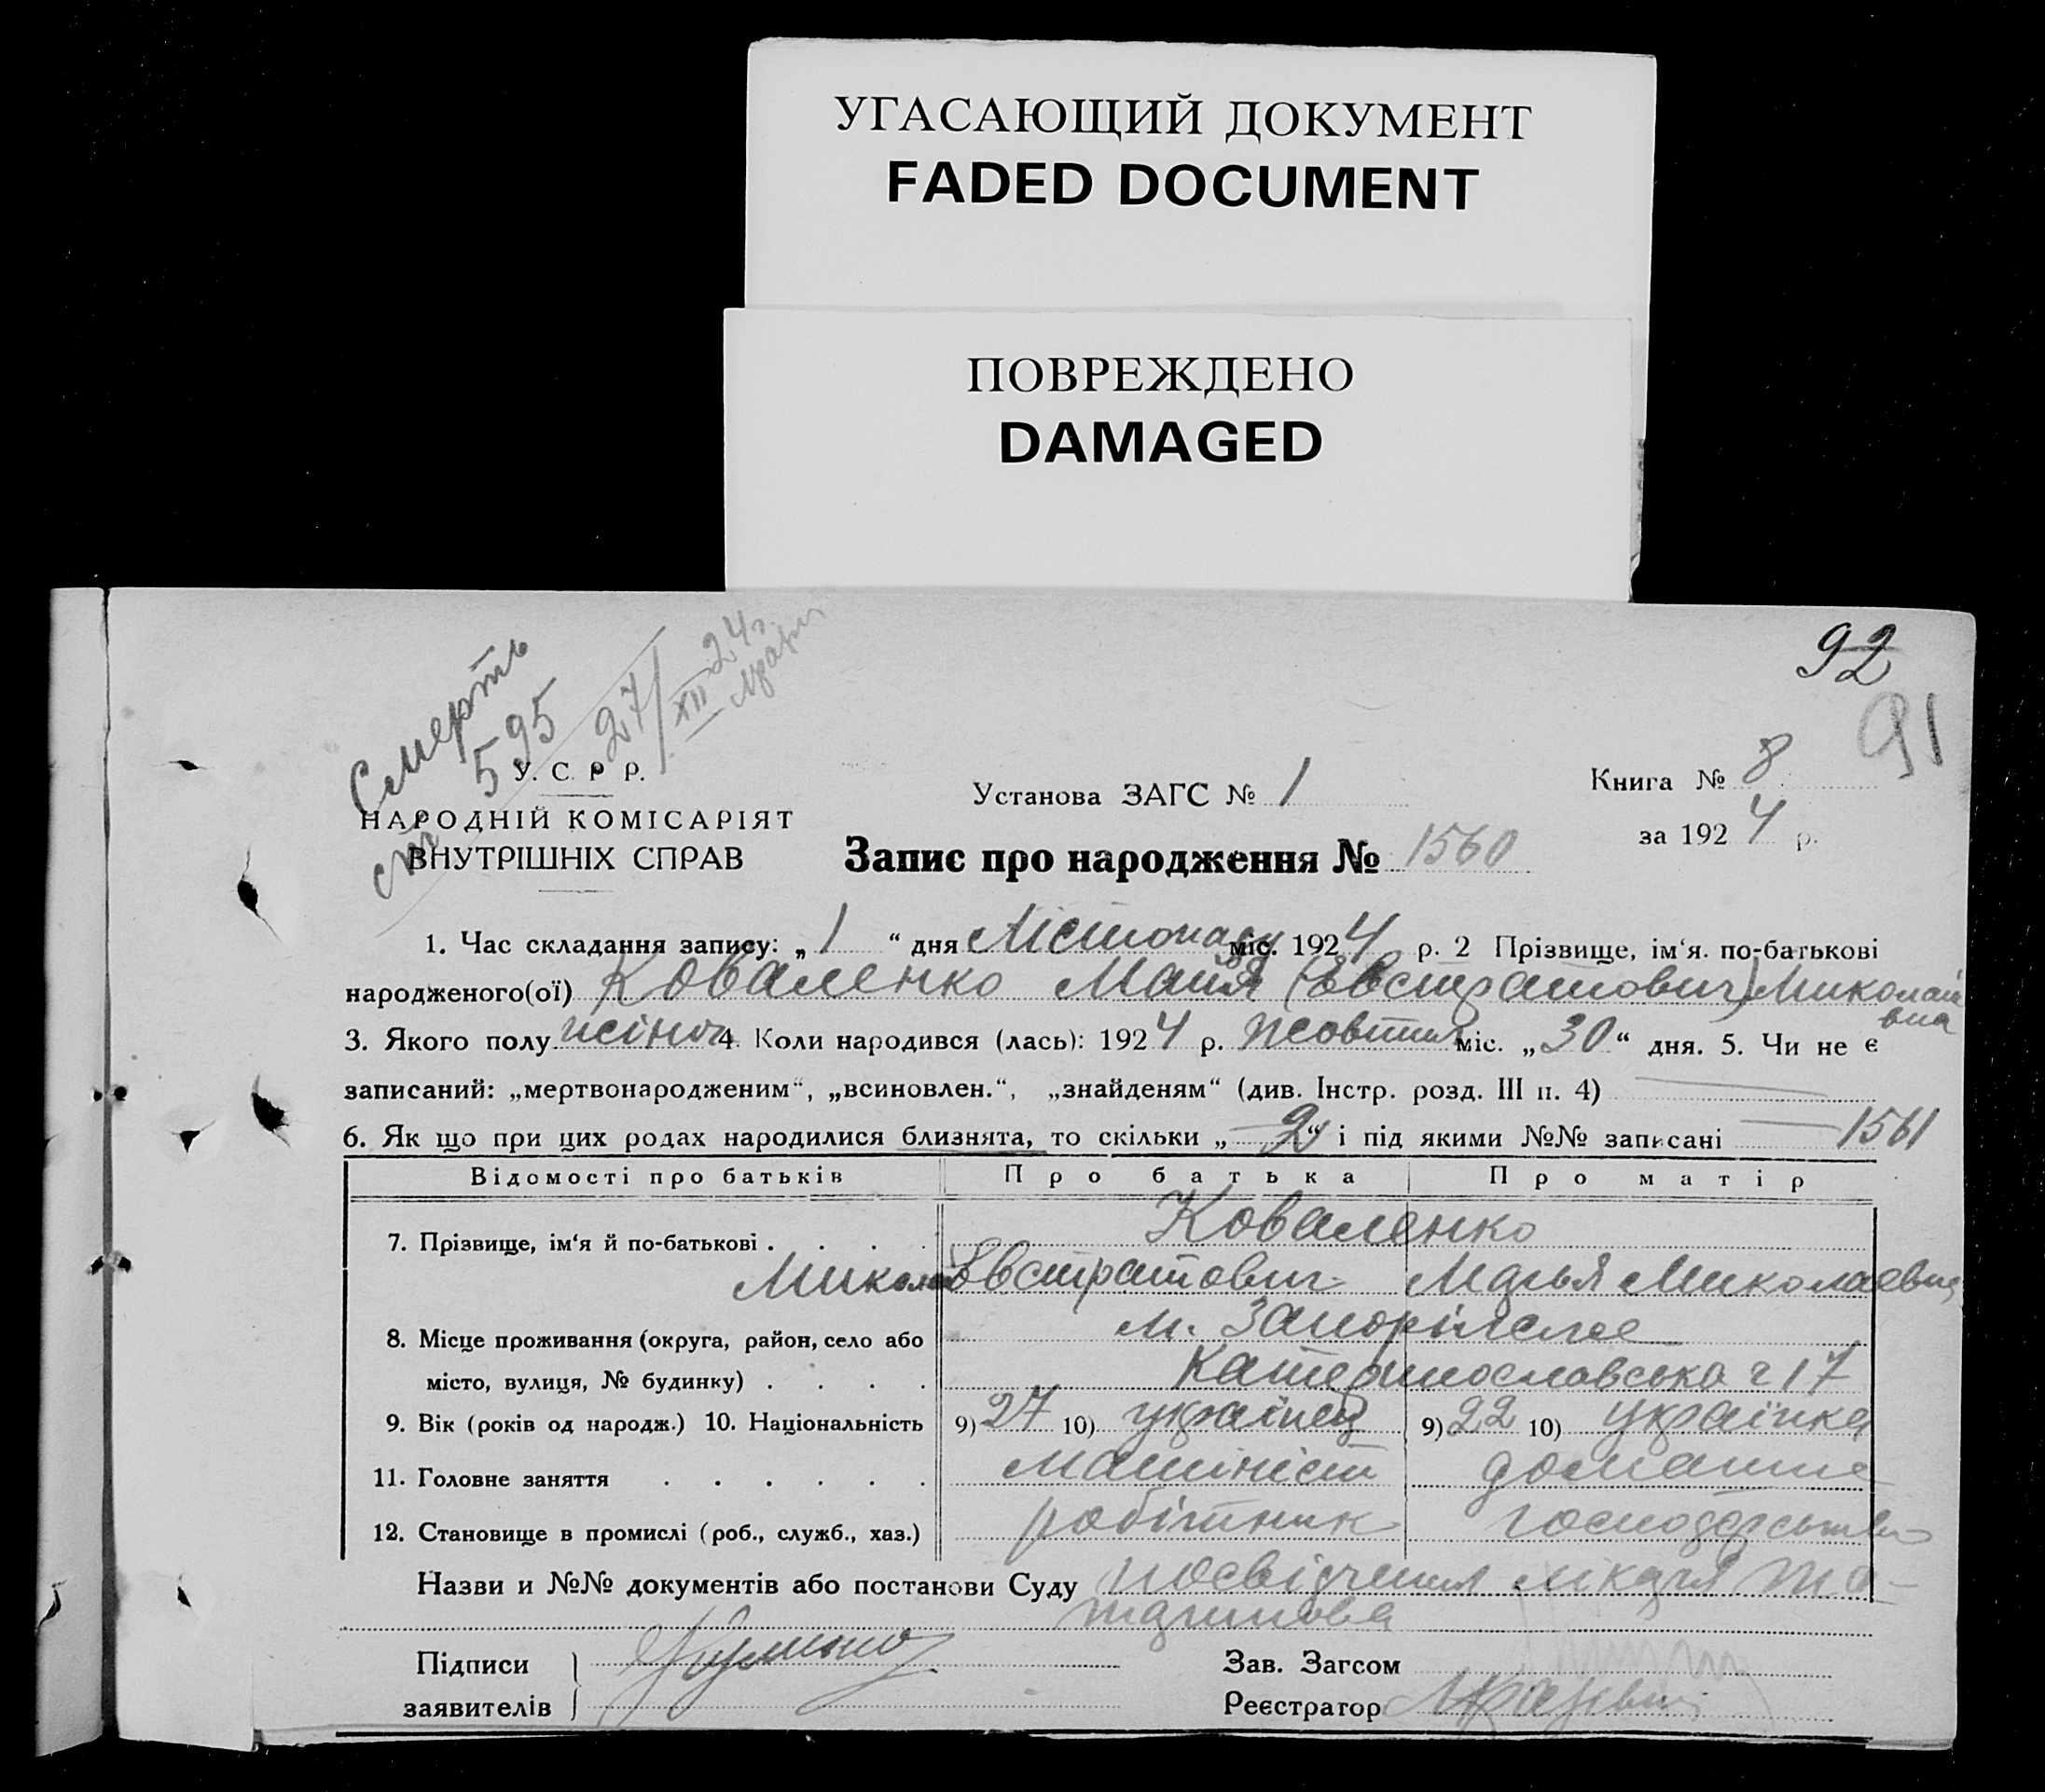 УГАСАЮЩИЙ ДОКУМЕНТ
FADED DOCUMENT
ПОВРЕЖДЕНО
DAMAGED
92
91
Смерть
595 27/XII 24 г.
ст
У. С. Р Р.
НАРОДНІЙ КОМІСАРІЯТ
ВНУТРІШНІХ СПРАВ
Установа ЗАГС № 1
Книга № 8
за 1924 р.
Запис про народження № 1560
1. Час складання запису: „ 1 “ дня Лістопаду міс. 1924 р. 2 Прізвище, ім‘я. по-батькові
народженого(ої) Коваленко Майя (Євстратович) Миколаївна
3. Якого полу жіноч 4. Коли народився (лась): 1924 р. жовтня міс. „30“ дня. 5. Чи не є
записаний: „мертвонародженим“, „всиновлен.“, „знайденям“ (див. Інстр. розд. III п. 4)
6. Як що при цих родах народилися близнята, то скільки „ 2 “ і під якими №№ записані 1561
Відомості про батьків Про батька Про матір
7. Прізвище, ім‘я й по-батькові . . . . Коваленко
Микола Євстратович Марья Миколаевна
м. Запоріжже
8. Місце проживання (округа, район, село або
місто, вулиця, № будинку) . . . . Катеринославська 17
9. Вік (років од народж.) 10. Національність 9) 27 10) українец 9) 22 10) українка
11. Головне заняття . . . . . . машініст домашнє
12. Становище в промислі (роб., служб., хаз.) робітник господарство
Назви и №№ документів або постанови Суду посвідчення лікаря
Підписи
заявителів
Зав. Загсом
Реєстратор